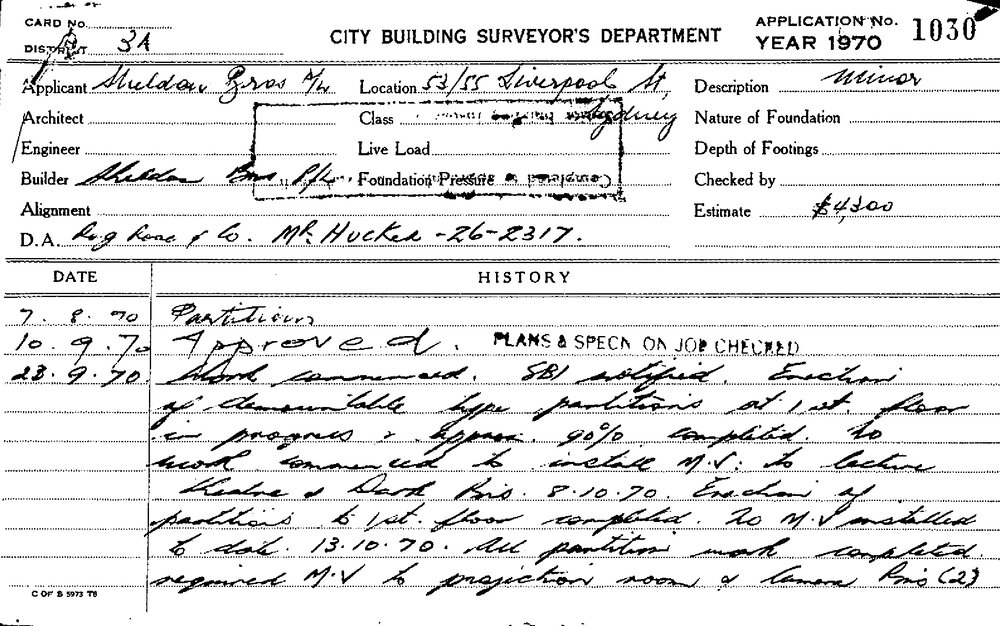 CARD No.
DISTRICT 3A
CITY BUILDING SURVEYOR'S DEPARTMENT
APPLICATION No. 1030
YEAR 1970
Applicant Sheldon Bros P/L Location 53/55 Liverpool St, Description Minor
Architect Class Sydney Nature of Foundation
Engineer Live Load Depth of Footings
Builder Sheldon Bros P/L. Foundation Pressure Checked by
Alignment Estimate $4,300
D.A. & Co. Mr. Hucker - 26-2317.
DATE HISTORY
7. 8. 70 Partitions
10. 9. 70 Approved. PLANS & SPECN ON JOB CHECKED
23. 9. 70. Work commenced. SBI notified. Erection
of demountable type partitions at 1st. floor
in progress & approx. 90% completed. No
work commenced to install M.V. to lecture
theatre & Dark Rms. 8.10.70. Erection of
partitions to 1st. floor completed. No M.V installed
to date. 13.10.70. All partition work completed.
required M.V to projection room & Camera Rms (2)
C OF S 5973 T8